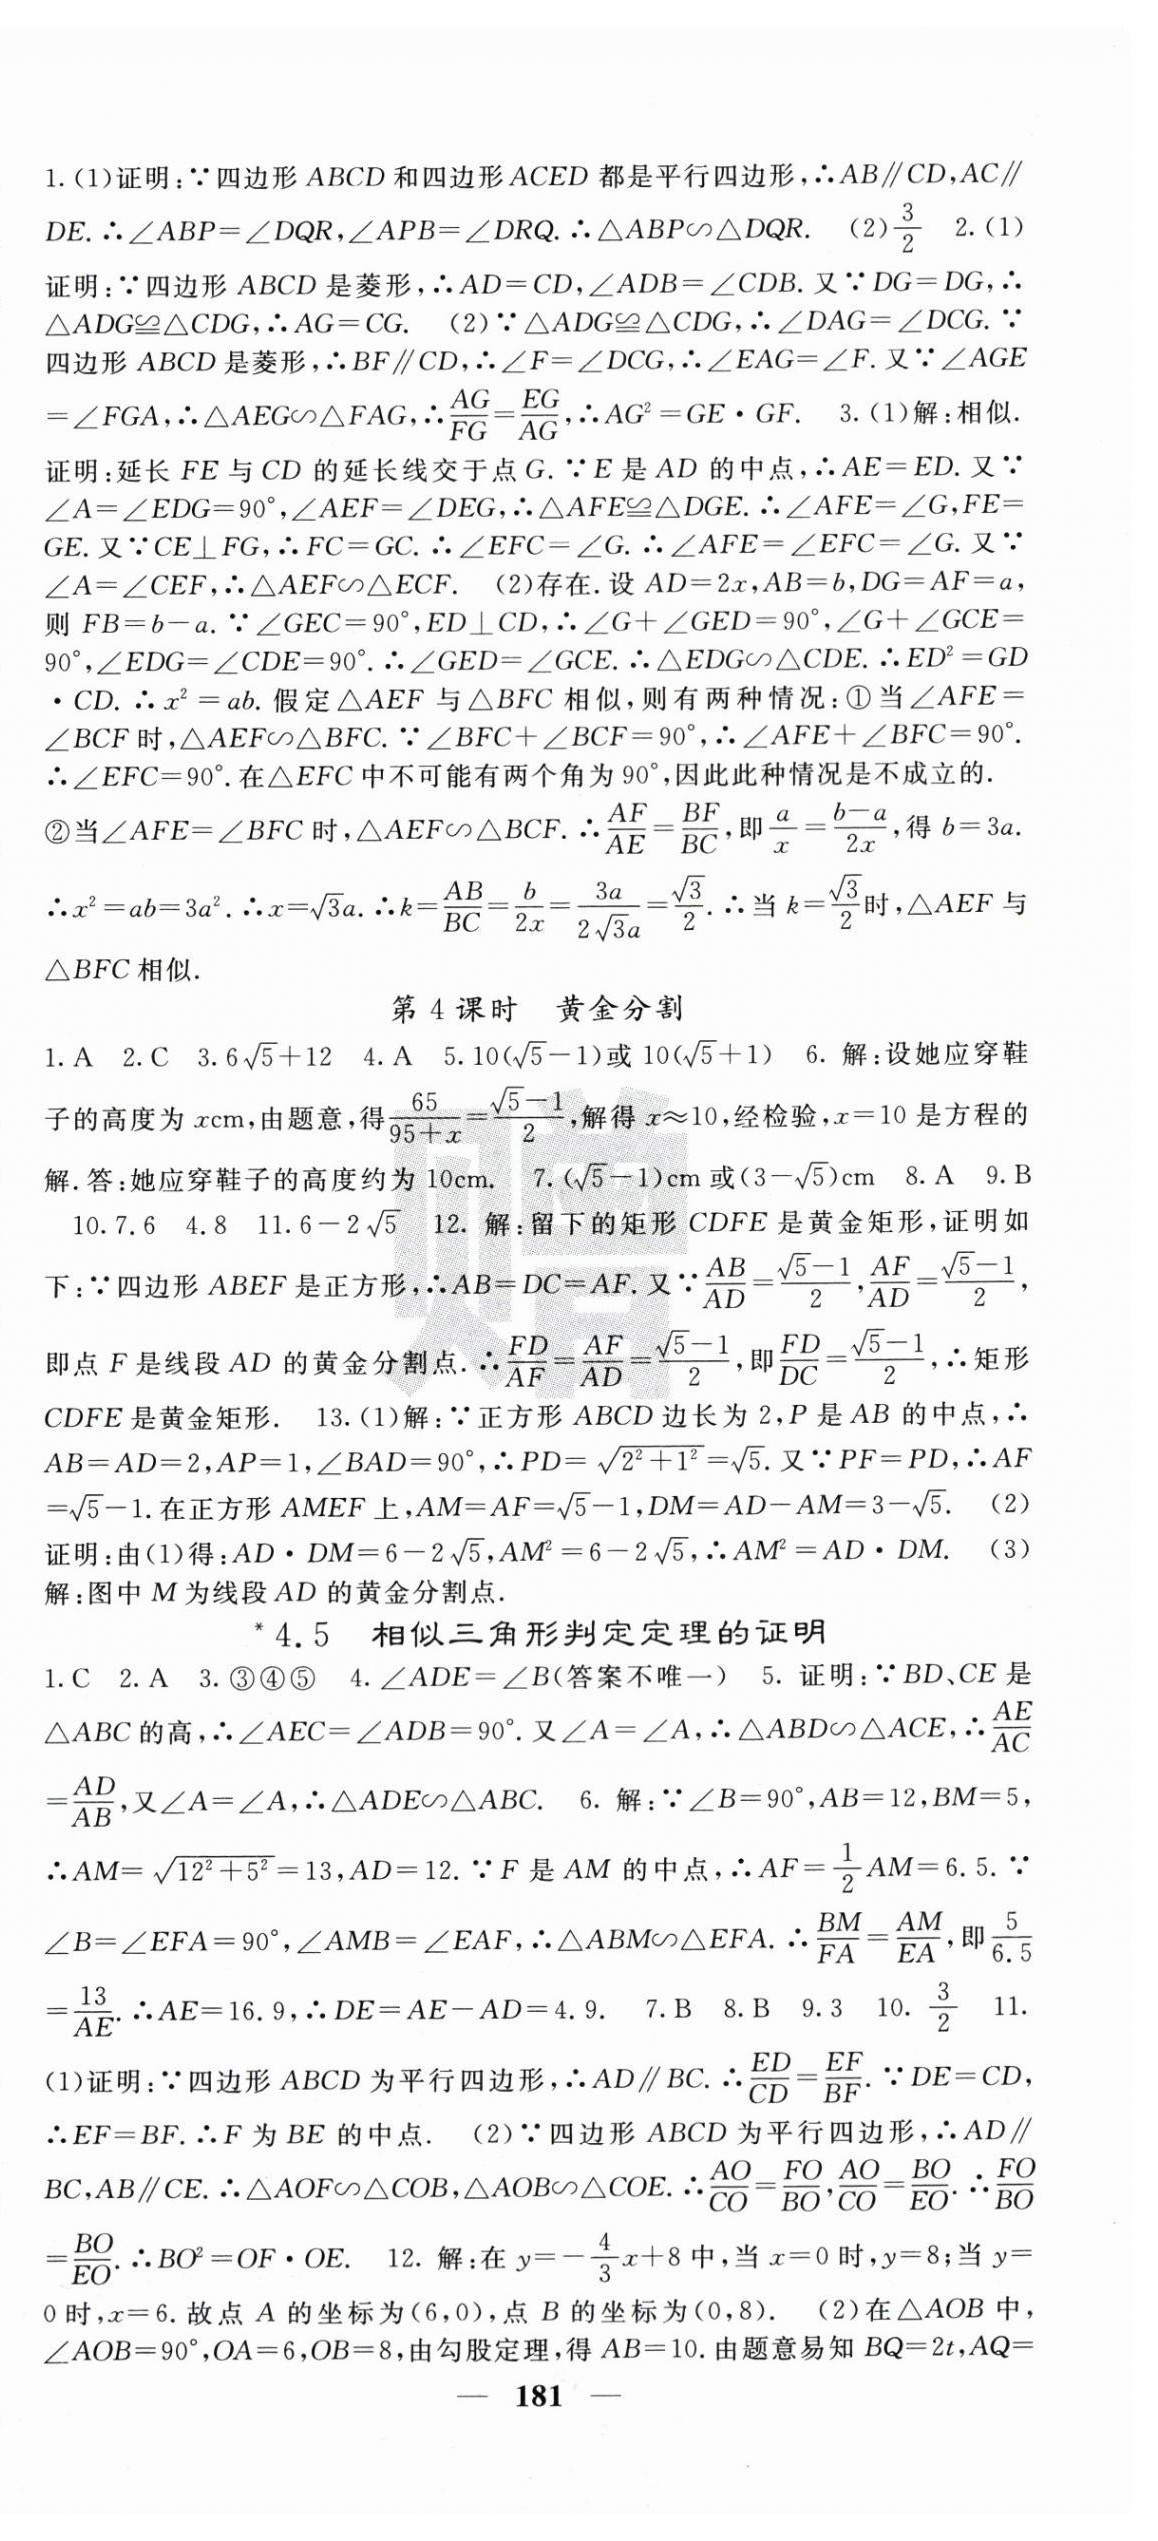 1. (1)证明:∵四边形 ABCD 和四边形 ACED 都是平行四边形,∴AB∥CD,AC∥
DE. ∴∠ABP=∠DQR,∠APB=∠DRQ. ∴△ABP∽△DQR. (2)3/2 2. (1)
证明:∵四边形 ABCD 是菱形,∴AD=CD,∠ADB=∠CDB. 又∵DG=DG,∴
△ADG≌△CDG,∴AG=CG. (2)∵△ADG≌△CDG,∴∠DAG=∠DCG. ∵
四边形 ABCD 是菱形,∴BF∥CD,∴∠F=∠DCG,∴∠EAG=∠F. 又∵∠AGE
=∠FGA,∴△AEG∽△FAG,∴AG/FG=EG/AG,∴AG²=GE·GF. 3. (1)解:相似.
证明:延长 FE 与 CD 的延长线交于点 G. ∵E 是 AD 的中点,∴AE=ED. 又∵
∠A=∠EDG=90°,∠AEF=∠DEG,∴△AFE≌△DGE. ∴∠AFE=∠G,FE=
GE. 又∵CE⊥FG,∴FC=GC. ∴∠EFC=∠G. ∴∠AFE=∠EFC=∠G. 又∵
∠A=∠CEF,∴△AEF∽△ECF. (2)存在. 设 AD=2x,AB=b,DG=AF=a,
则 FB=b-a. ∵∠GEC=90°,ED⊥CD,∴∠G+∠GED=90°,∠G+∠GCE=
90°,∠EDG=∠CDE=90°. ∴∠GED=∠GCE. ∴△EDG∽△CDE. ∴ED²=GD
·CD. ∴x²=ab. 假定△AEF 与△BFC 相似,则有两种情况:①当∠AFE=
∠BCF 时,△AEF∽△BFC. ∵∠BFC+∠BCF=90°,∴∠AFE+∠BFC=90°.
∴∠EFC=90°. 在△EFC 中不可能有两个角为 90°,因此此种情况是不成立的.
②当∠AFE=∠BFC 时,△AEF∽△BCF. ∴AF/AE=BF/BC,即a/x=(b-a)/2x,得 b=3a.
∴x²=ab=3a². ∴x=√3a. ∴k=AB/BC=b/2x=3a/2√3a=√3/2. ∴当 k=√3/2时,△AEF 与
△BFC 相似.
第 4 课时 黄金分割
1. A 2. C 3. 6√5+12 4. A 5. 10(√5-1)或 10(√5+1) 6. 解:设她应穿鞋
子的高度为 xcm,由题意,得65/(95+x)=(√5-1)/2,解得 x≈10,经检验,x=10 是方程的
解. 答:她应穿鞋子的高度约为 10cm. 7. (√5-1)cm 或(3-√5)cm 8. A 9. B
10. 7.6 4.8 11. 6-2√5 12. 解:留下的矩形 CDFE 是黄金矩形,证明如
下:∵四边形 ABEF 是正方形,∴AB=DC=AF. 又∵AB/AD=(√5-1)/2,AF/AD=(√5-1)/2,
即点 F 是线段 AD 的黄金分割点. ∴FD/AF=AF/AD=(√5-1)/2,即FD/DC=(√5-1)/2,∴矩形
CDFE 是黄金矩形. 13. (1)解:∵正方形 ABCD 边长为 2,P 是 AB 的中点,∴
AB=AD=2,AP=1,∠BAD=90°,∴PD=√(2²+1²)=√5. 又∵PF=PD,∴AF
=√5-1. 在正方形 AMEF 上,AM=AF=√5-1,DM=AD-AM=3-√5. (2)
证明:由(1)得:AD·DM=6-2√5,AM²=6-2√5,∴AM²=AD·DM. (3)
解:图中 M 为线段 AD 的黄金分割点.
*4.5 相似三角形判定定理的证明
1. C 2. A 3. ③④⑤ 4. ∠ADE=∠B(答案不唯一) 5. 证明:∵BD、CE 是
△ABC 的高,∴∠AEC=∠ADB=90°. 又∠A=∠A,∴△ABD∽△ACE,∴AE/AC
=AD/AB,又∠A=∠A,∴△ADE∽△ABC. 6. 解:∵∠B=90°,AB=12,BM=5,
∴AM=√(12²+5²)=13,AD=12. ∵F 是 AM 的中点,∴AF=1/2AM=6.5. ∵
∠B=∠EFA=90°,∠AMB=∠EAF,∴△ABM∽△EFA. ∴BM/FA=AM/EA,即5/6.5
=13/AE. ∴AE=16.9,∴DE=AE-AD=4.9. 7. B 8. B 9. 3 10. 3/2 11.
(1)证明:∵四边形 ABCD 为平行四边形,∴AD∥BC. ∴ED/CD=EF/BF. ∵DE=CD,
∴EF=BF. ∴F 为 BE 的中点. (2)∵四边形 ABCD 为平行四边形,∴AD∥
BC,AB∥CE. ∴△AOF∽△COB,△AOB∽△COE. ∴AO/CO=FO/BO,AO/CO=BO/EO. ∴FO/BO
=BO/EO. ∴BO²=OF·OE. 12. 解:在 y=-4/3x+8 中,当 x=0 时,y=8;当 y=
0 时,x=6. 故点 A 的坐标为(6,0),点 B 的坐标为(0,8). (2)在△AOB 中,
∠AOB=90°,OA=6,OB=8,由勾股定理,得 AB=10. 由题意易知 BQ=2t,AQ=
— 181 —
赠